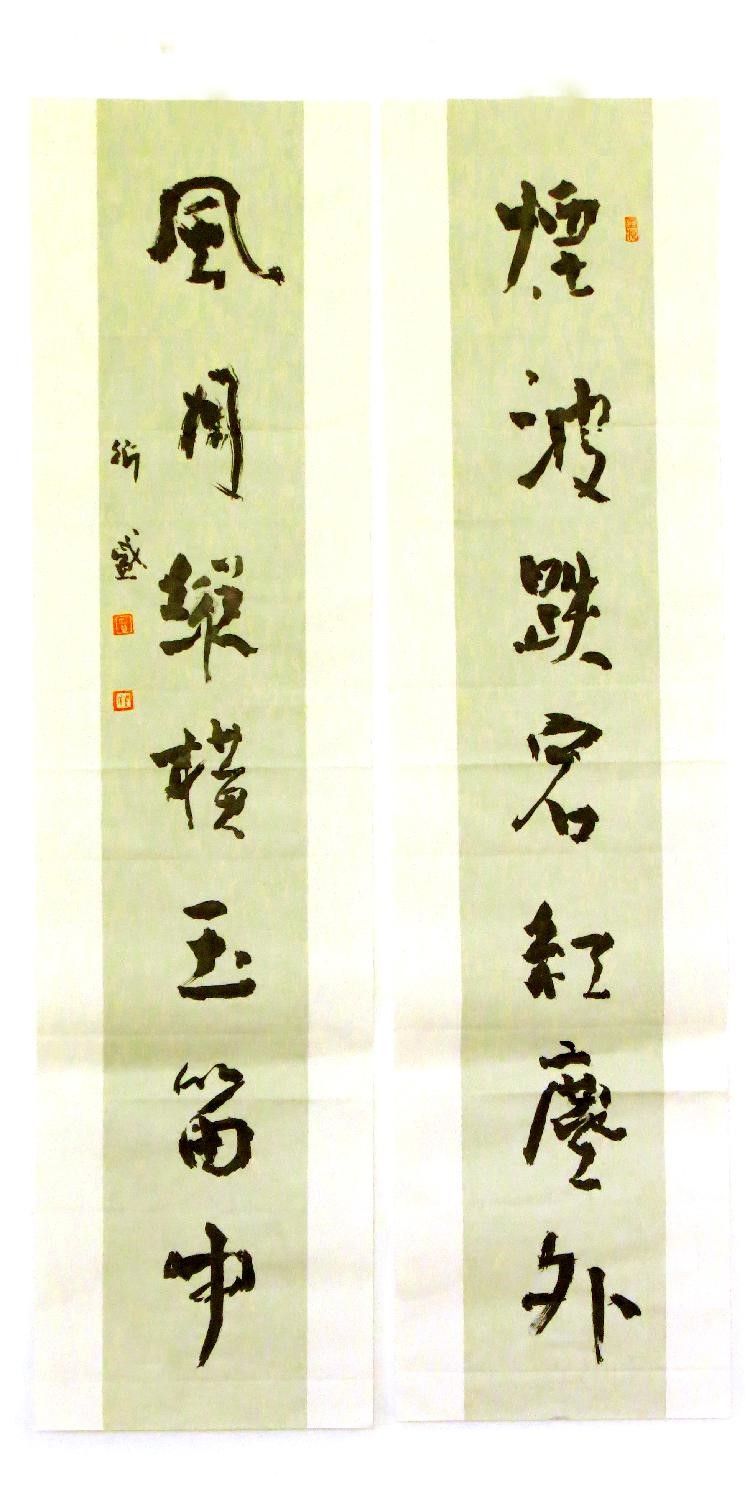 煙波跌宕紅塵外
風月縱橫玉笛中
衍盛